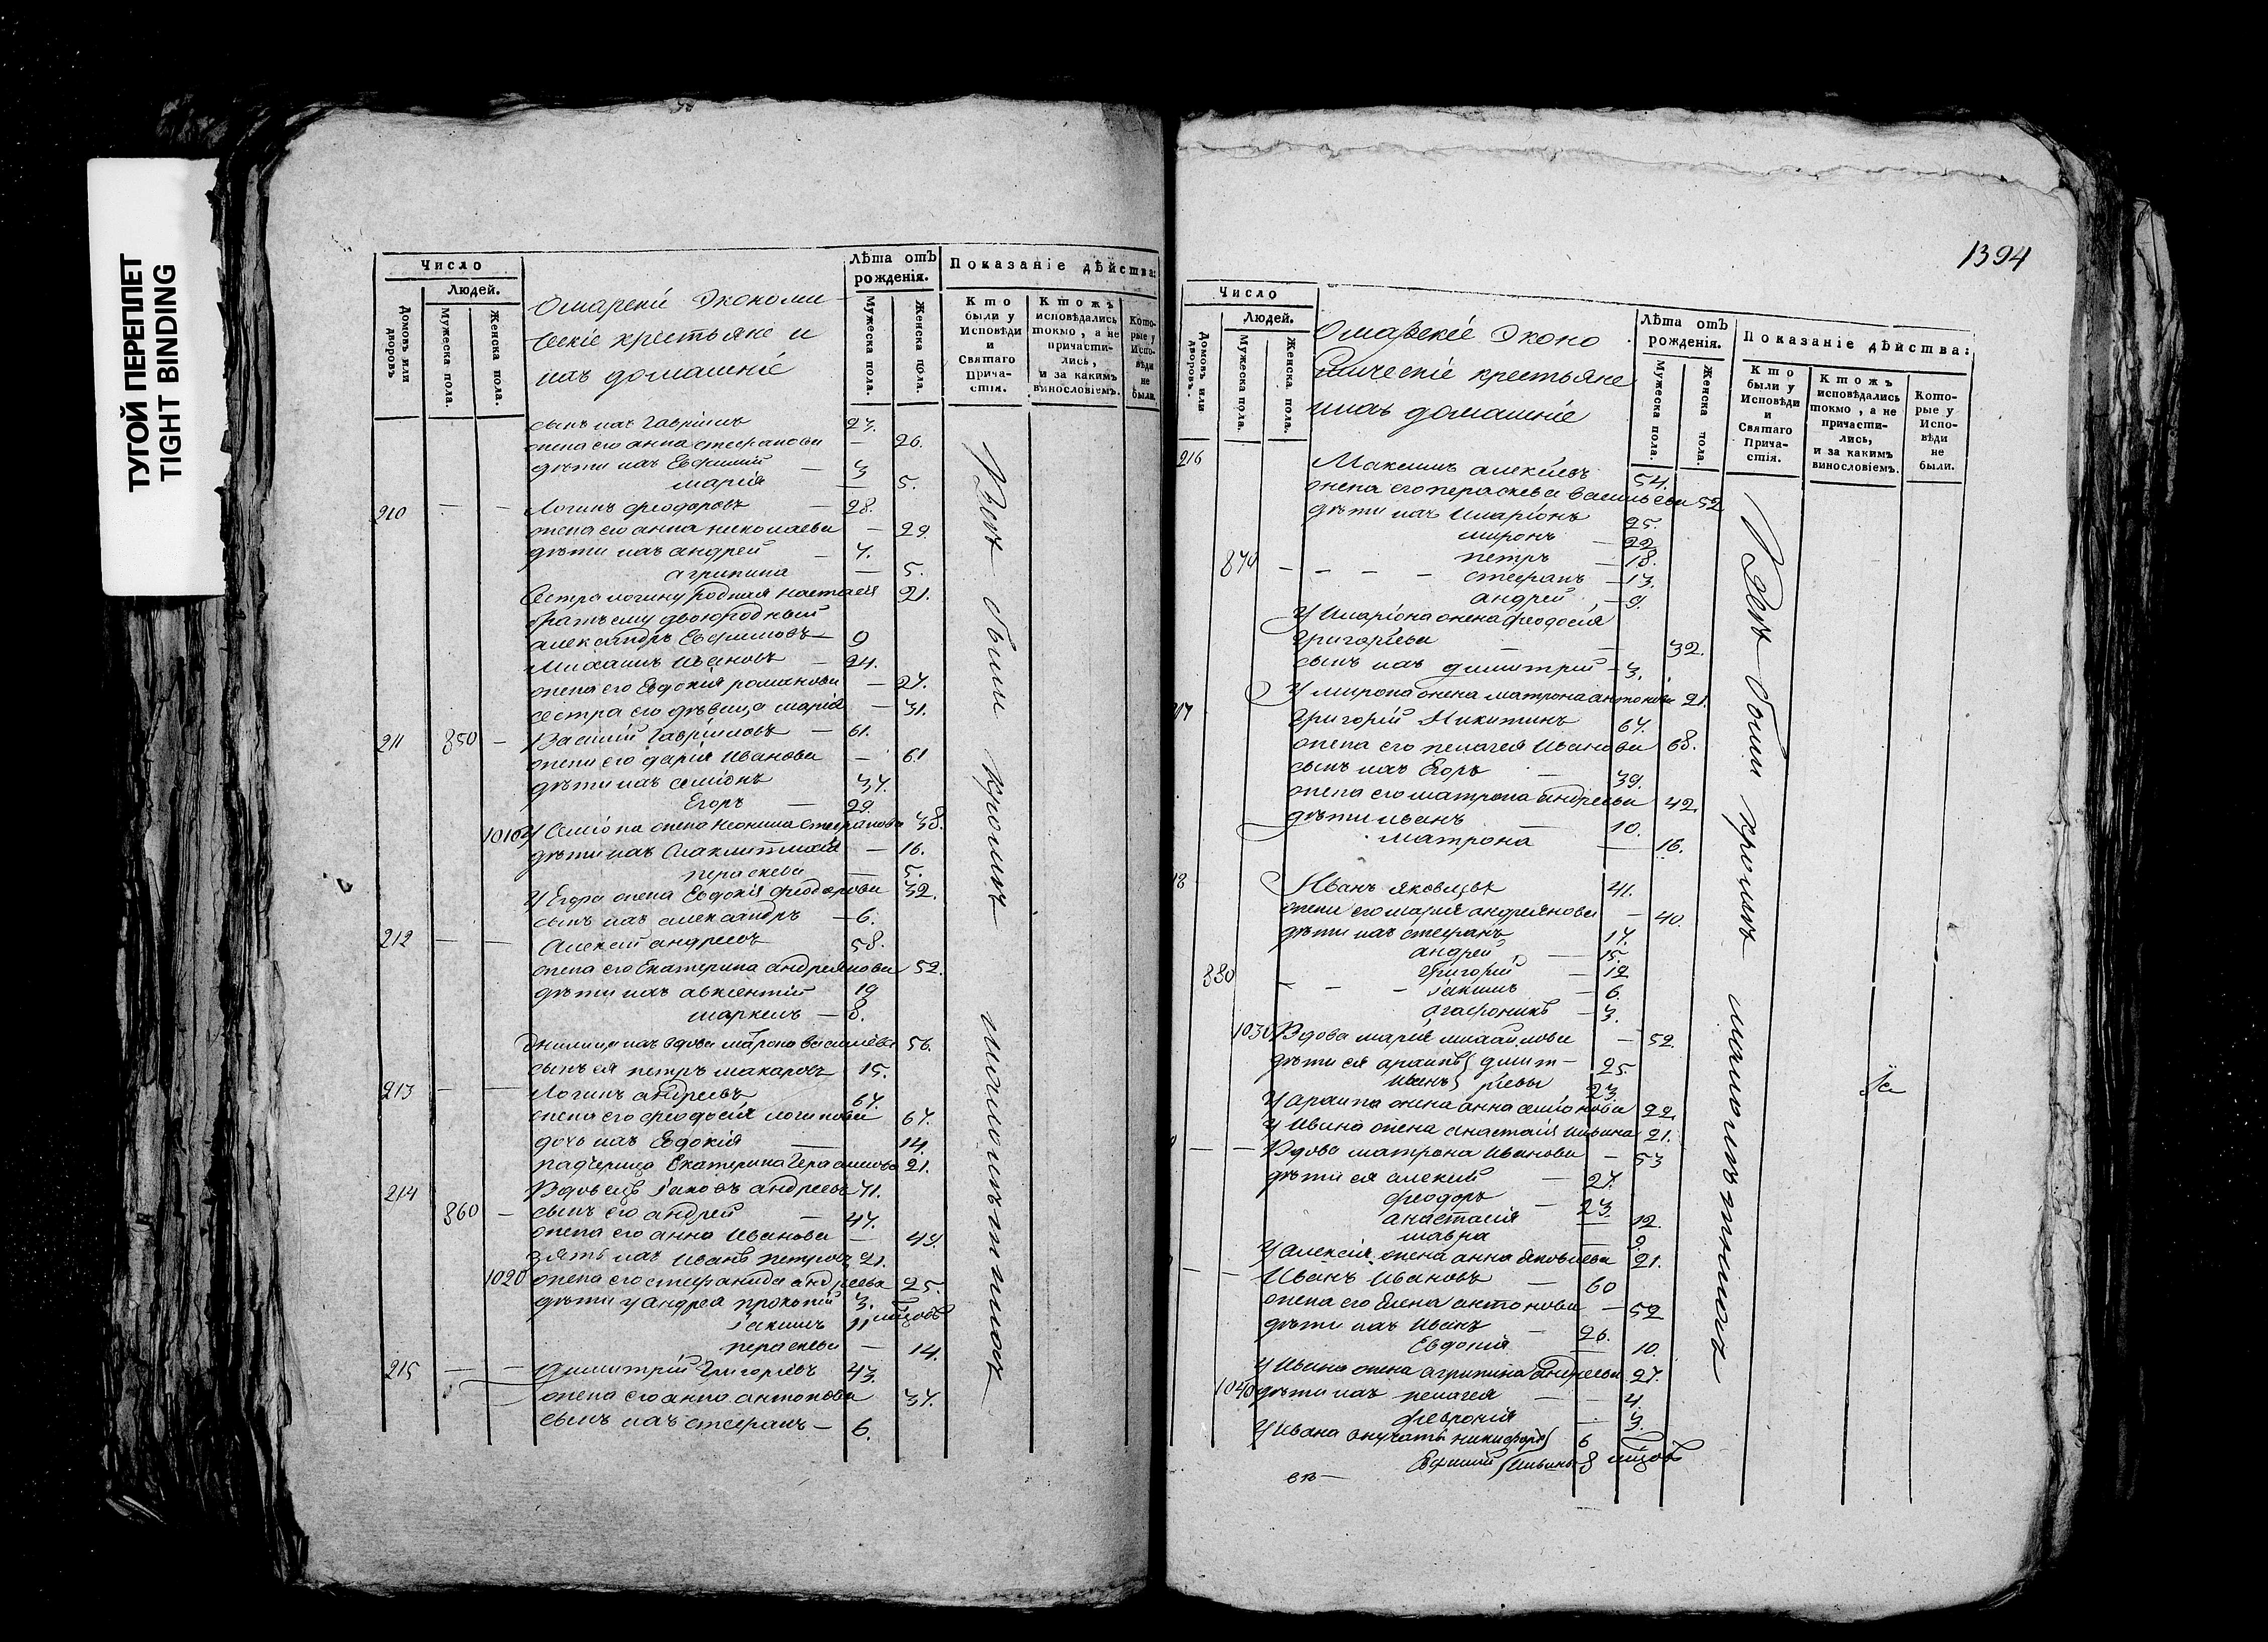 ТУГОЙ ПЕРЕПЛЕТ
TIGHT BINDING
Число
Людей.
Домовъ или дворовъ
Мужеска пола.
Женска пола.
Омарскіе Экономи
ческіе крестьяне и
ихъ домашніе
Лѣта отъ рожденія.
Мужеска пола.
Женска пола.
Показаніе дѣйства:
Кто были у Исповѣди и Святаго Прича- стія.
Ктожъ исповѣдались токмо, а не причасти- лись, и за какимъ винословіемъ.
Кото- рые у Испо- вѣди не были.
сынъ ихъ Гавріилъ 23.
жена его анна стефанова — 26.
дѣти ихъ Евфимій — 3
марія — 5.
210 — — Логинъ феодоровъ — 28.
жена его анна николаева — 29.
дѣти ихъ андрей — 4.
агрипина — 5.
Сестра логину родная настасія 21.
братъ ему двоюродный
александръ Евфимовъ — 9
Михаилъ Ивановъ — 24.
жена его Евдокія романова — 27.
сестра его дѣвица марія — 31.
211 850 — Василій Гавріиловъ — 61.
жена его дарія Иванова — 61
дѣти ихъ семіонъ 37.
Егоръ — 29
1010 У Семіона жена Неонила Стефанова 38.
дѣти ихъ — 16.
параскева — 5.
У Егора жена Евдокія феодорова 32.
сынъ ихъ александръ — 6.
212 — — Алексій андреевъ 58.
жена его Екатерина андреянова 52.
дѣти ихъ авксентій 19
маркелъ — 8.
Жилица ихъ вдова матрона василіева 56.
сынъ ея петръ макаровъ 15.
213 — — Логинъ андреевъ 67.
жена его феодосія логинова 67.
дочь ихъ Евдокія — 14.
падчерица Екатерина Герасимова 21.
214 Вдовецъ Іаковъ андреевъ 71.
860 — сынъ его андрей — 47.
жена его анна Иванова — 49.
зять ихъ Иванъ петровъ 21.
1020 жена его стефанида андреева 25.
дѣти у андрея прокопій 3.
Іакимъ 11 мѣсяцовъ
параскева — 14.
215 — — Димитрій Григоріевъ 43.
жена его анна антонова 37.
сынъ ихъ стефанъ — 6.
Всѣ были кромѣ малолѣтныхъ
1394
Число
Людей.
Домовъ или дворовъ.
Мужеска пола.
Женска пола.
Омарскіе Эконо
мическіе крестьяне
и ихъ домашніе
Лѣта отъ рожденія.
Мужеска пола.
Женска пола.
Показаніе дѣйства:
Кто были у Исповѣди и Святаго Прича- стія.
Ктожъ исповѣдались токмо, а не причасти- лись, и за какимъ винословіемъ.
Кото- рые у Испо- вѣди не были.
216 Максимъ алексіевъ 54.
жена его параскева васильева 52
дѣти ихъ Иларіонъ 25.
миронъ — 22
петръ — 18.
870 — — — — стефанъ — 13.
андрей — 9.
У Иларіона жена феодосія
григоріева — — 32.
сынъ ихъ димитрій — 3.
У мирона жена матрона антонова 21.
Григорій Никитинъ 67.
жена его пелагея Иванова 68.
сынъ ихъ Егоръ — 39.
жена его матрона андреева 42.
дѣти иванъ 10.
матрона — 16.
Иванъ яковлевъ 41.
жена его марія андреянова — 40.
дѣти ихъ стефанъ 17.
андрей — 15.
880 Григорій — 12
— — — Іакимъ — 6.
агафоникъ — 3.
1030 Вдова марія михайлова — 52.
дѣти ея архипъ димит— 25.
иванъ ріевы 23.
У архипа жена анна семіонова 22.
У Ивана жена анастасія ильина 21.
— — Вдова матрона Иванова — 53
дѣти ея алексій — 27.
феодоръ — 23.
анастасія — 12.
мавра — 9.
У алексія жена анна яковлева 21.
— — Иванъ Ивановъ — 60
жена его Елена антонова — 52
дѣти ихъ Иванъ — 26.
Евдокія — 10.
У Ивана жена агрипина андреева 27.
1040 дѣти ихъ пелагея — — 4.
феѵронія — 3.
У Ивана внучаты никифоръ 6
Евфимій Ильины 8 мѣсяцовъ
Всѣ были кромѣ малолѣтныхъ